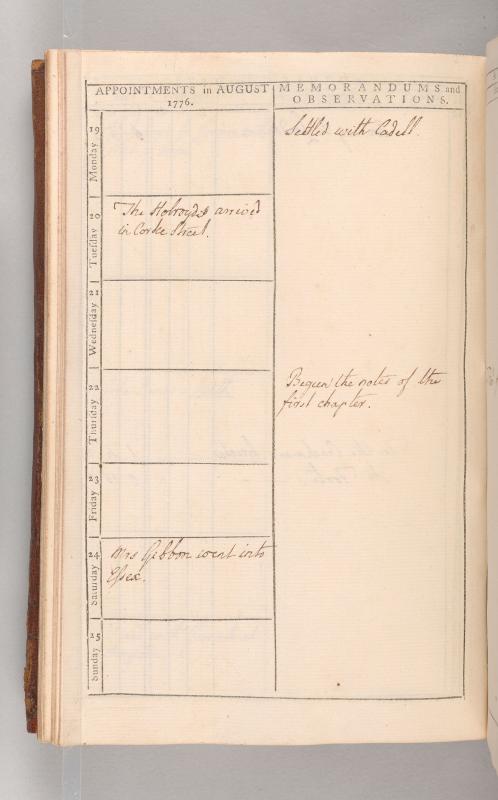 APPOINTMENTS in AUGUST
1776.
MEMORANDUMS and
OBSERVATIONS.
Monday 19
Settled with Cadell.
Tueſday 20
The Holroyds arrived
in Corke Street.
Wedneſday 21
Thurſday 22
Begun the notes of the
first chapter.
Friday 23
Saturday 24
Mrs Gibbon went into
Eſsex.
Sunday 25